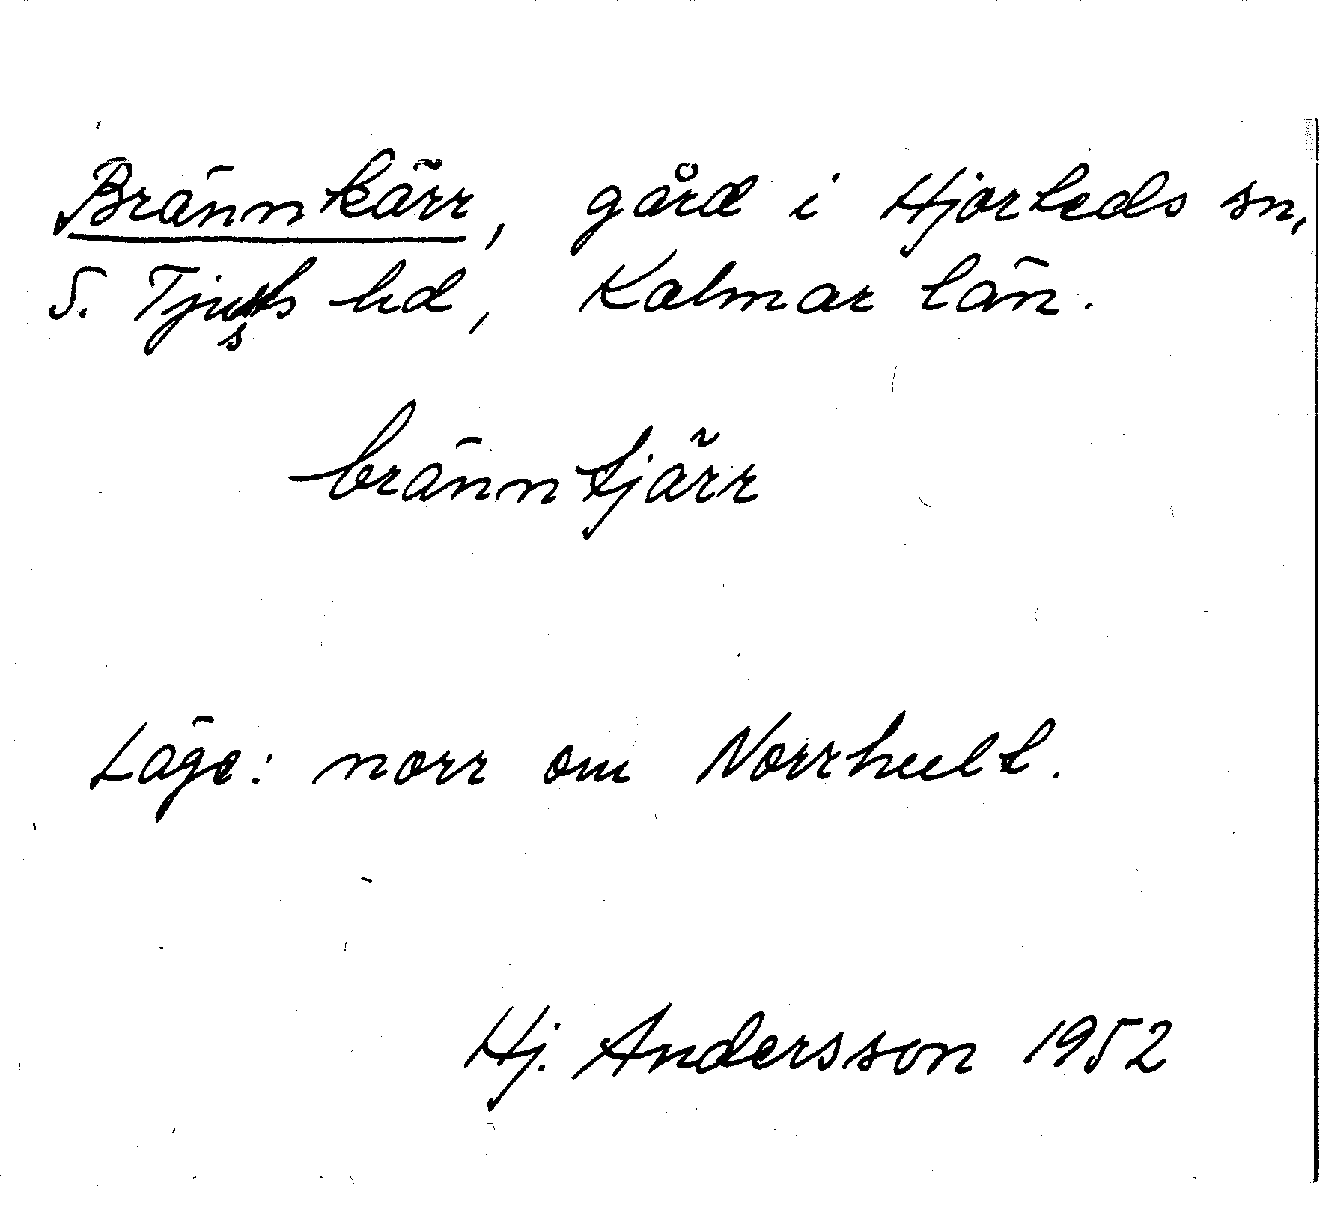 Brännkärr, gård i Hjorteds sn,
S. Tjusts hd, Kalmar län.
bränntjärr
Läge: norr om Norrhult.
Hj. Andersson 1952